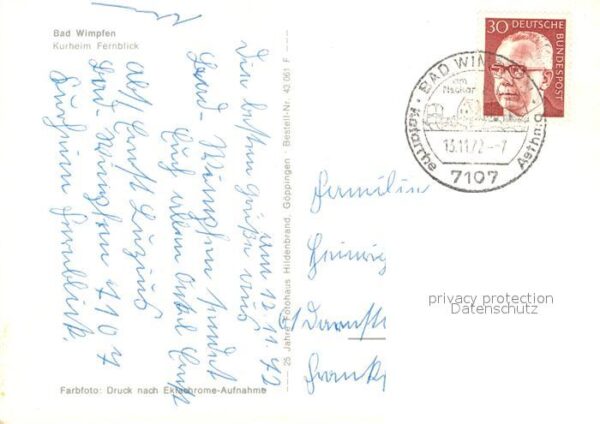 Bad Wimpfen
Kurheim Fernblick
am 12.11.72
Die besten Grüße aus
Bad-Wimpfen sendet
Euch allen Onkel Ernst
Abs. Ernst
Bad-Wimpfen 7107
Kurheim Fernblick.
Farbfoto: Druck nach Ektachrome-Aufnahme
25 Jahre Fotohaus Hildenbrand, Göppingen · Bestell-Nr. 43 061 F
30 DEUTSCHE BUNDESPOST
BAD WIMPFEN
am Neckar
13.11.72 --7
7107
Familie
Heinrig
Darmst
Frank
privacy protection
Datenschutz